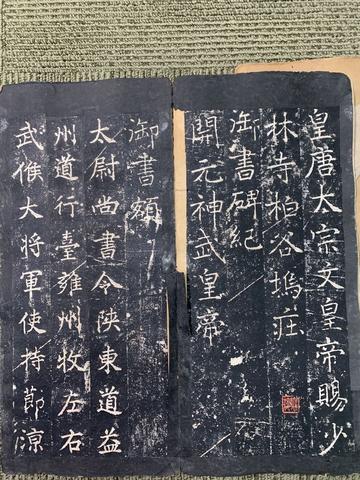 皇唐太宗文皇帝賜少
林寺柏谷塢莊
御書碑紀
開元神武皇帝
御書額
太尉尚書令陝東道益
州道行臺雍州牧左右
武候大將軍使持節涼